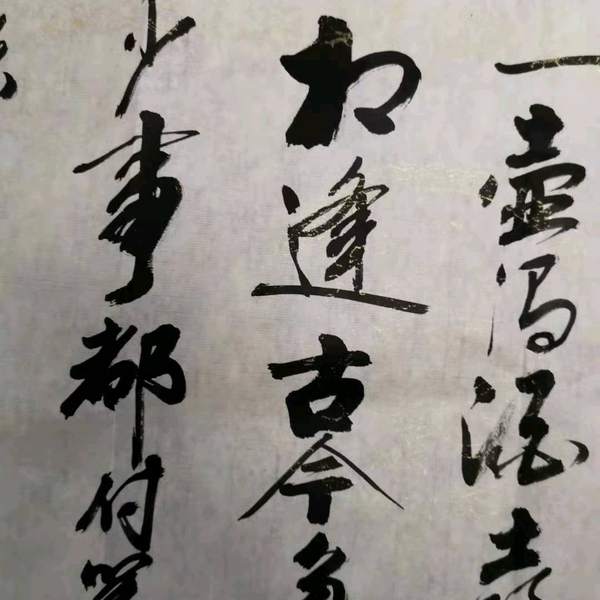 一壺濁酒喜
相逢古今多
少事都付笑